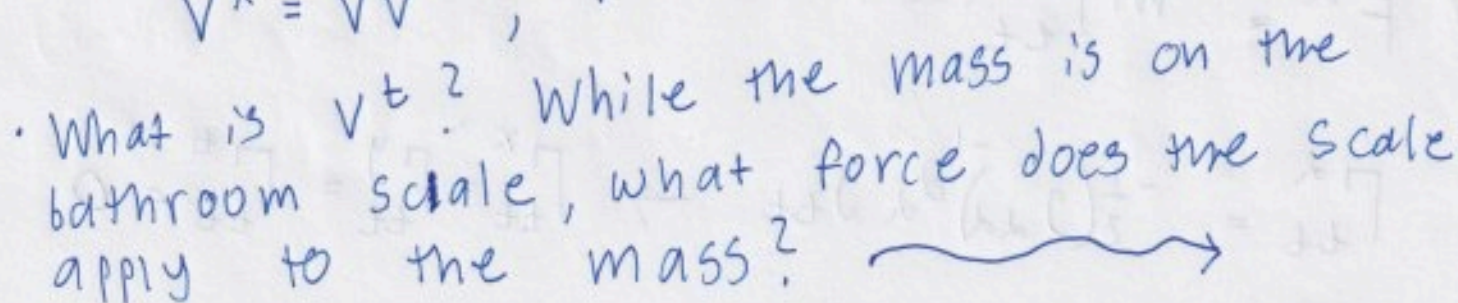 • What is v^t? While the mass is on the
bathroom sclale, what force does the scale
apply to the mass?